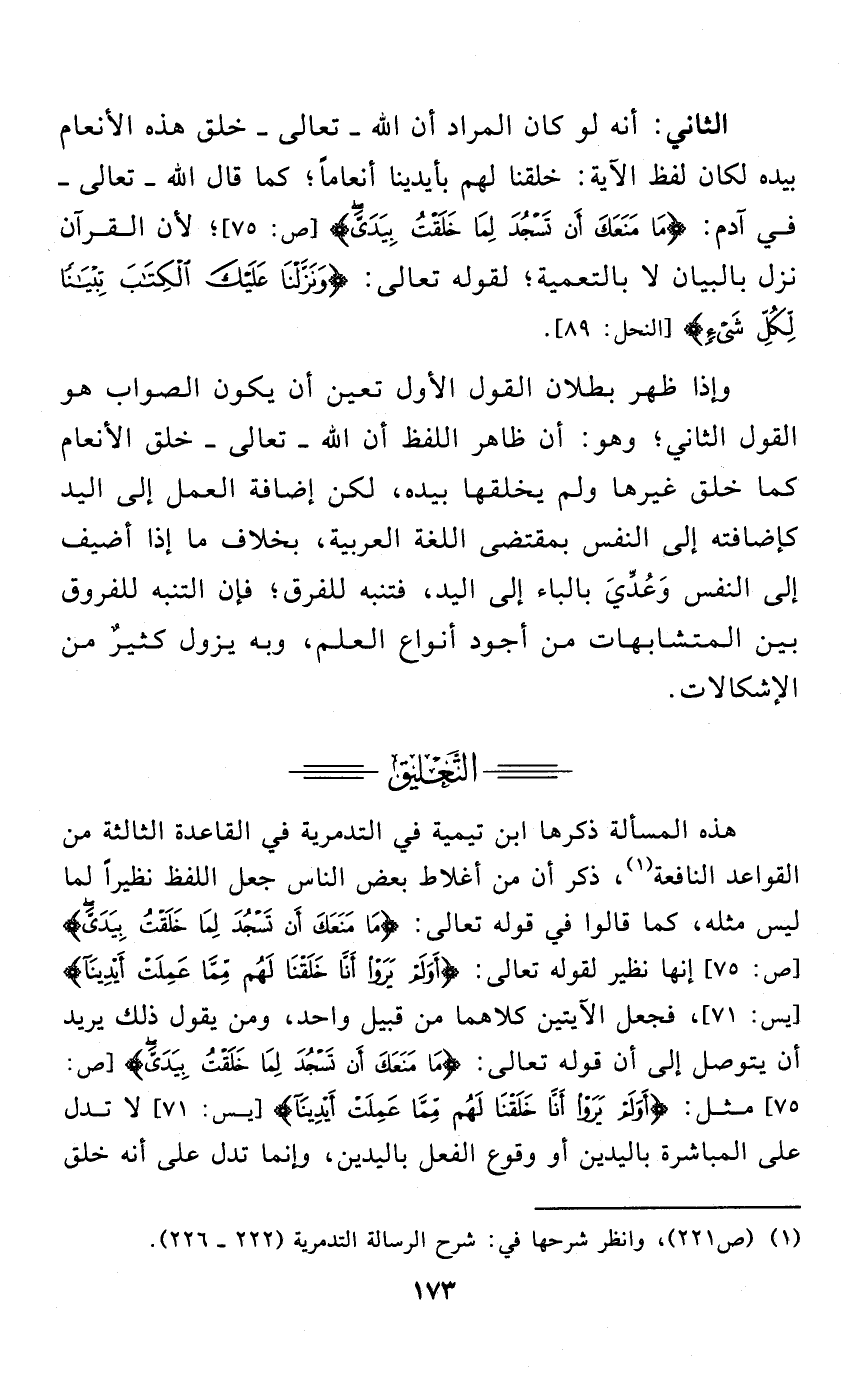 الثاني: أنه لو كان المراد أن الله ـ تعالى ـ خلق هذه الأنعام
بيده لكان لفظ الآية: خلقنا لهم بأيدينا أنعاماً؛ كما قال الله ـ تعالى ـ
في آدم: ﴿مَا مَنَعَكَ أَن تَسْجُدَ لِمَا خَلَقْتُ بِيَدَىَّۖ﴾ [ص: ٧٥]؛ لأن القرآن
نزل بالبيان لا بالتعمية؛ لقوله تعالى: ﴿وَنَزَّلْنَا عَلَيْكَ ٱلْكِتَٰبَ تِبْيَٰنًا
لِّكُلِّ شَىْءٍ﴾ [النحل: ٨٩].
وإذا ظهر بطلان القول الأول تعين أن يكون الصواب هو
القول الثاني؛ وهو: أن ظاهر اللفظ أن الله ـ تعالى ـ خلق الأنعام
كما خلق غيرها ولم يخلقها بيده، لكن إضافة العمل إلى اليد
كإضافته إلى النفس بمقتضى اللغة العربية، بخلاف ما إذا أضيف
إلى النفس وَعُدِّيَ بالباء إلى اليد، فتنبه للفرق؛ فإن التنبه للفروق
بين المتشابهات من أجود أنواع العلم، وبه يزول كثيرٌ من
الإشكالات.
التَّعْلِيق
هذه المسألة ذكرها ابن تيمية في التدمرية في القاعدة الثالثة من
القواعد النافعة(١)، ذكر أن من أغلاط بعض الناس جعل اللفظ نظيراً لما
ليس مثله، كما قالوا في قوله تعالى: ﴿مَا مَنَعَكَ أَن تَسْجُدَ لِمَا خَلَقْتُ بِيَدَىَّۖ﴾
[ص: ٧٥] إنها نظير لقوله تعالى: ﴿أَوَلَمْ يَرَوْا۟ أَنَّا خَلَقْنَا لَهُم مِّمَّا عَمِلَتْ أَيْدِينَآ﴾
[يس: ٧١]، فجعل الآيتين كلاهما من قبيل واحد، ومن يقول ذلك يريد
أن يتوصل إلى أن قوله تعالى: ﴿مَا مَنَعَكَ أَن تَسْجُدَ لِمَا خَلَقْتُ بِيَدَىَّۖ﴾ [ص:
٧٥] مثل: ﴿أَوَلَمْ يَرَوْا۟ أَنَّا خَلَقْنَا لَهُم مِّمَّا عَمِلَتْ أَيْدِينَآ﴾ [يس: ٧١] لا تدل
على المباشرة باليدين أو وقوع الفعل باليدين، وإنما تدل على أنه خلق
(١) (ص٢٢١)، وانظر شرحها في: شرح الرسالة التدمرية (٢٢٢ ـ ٢٢٦).
١٧٣